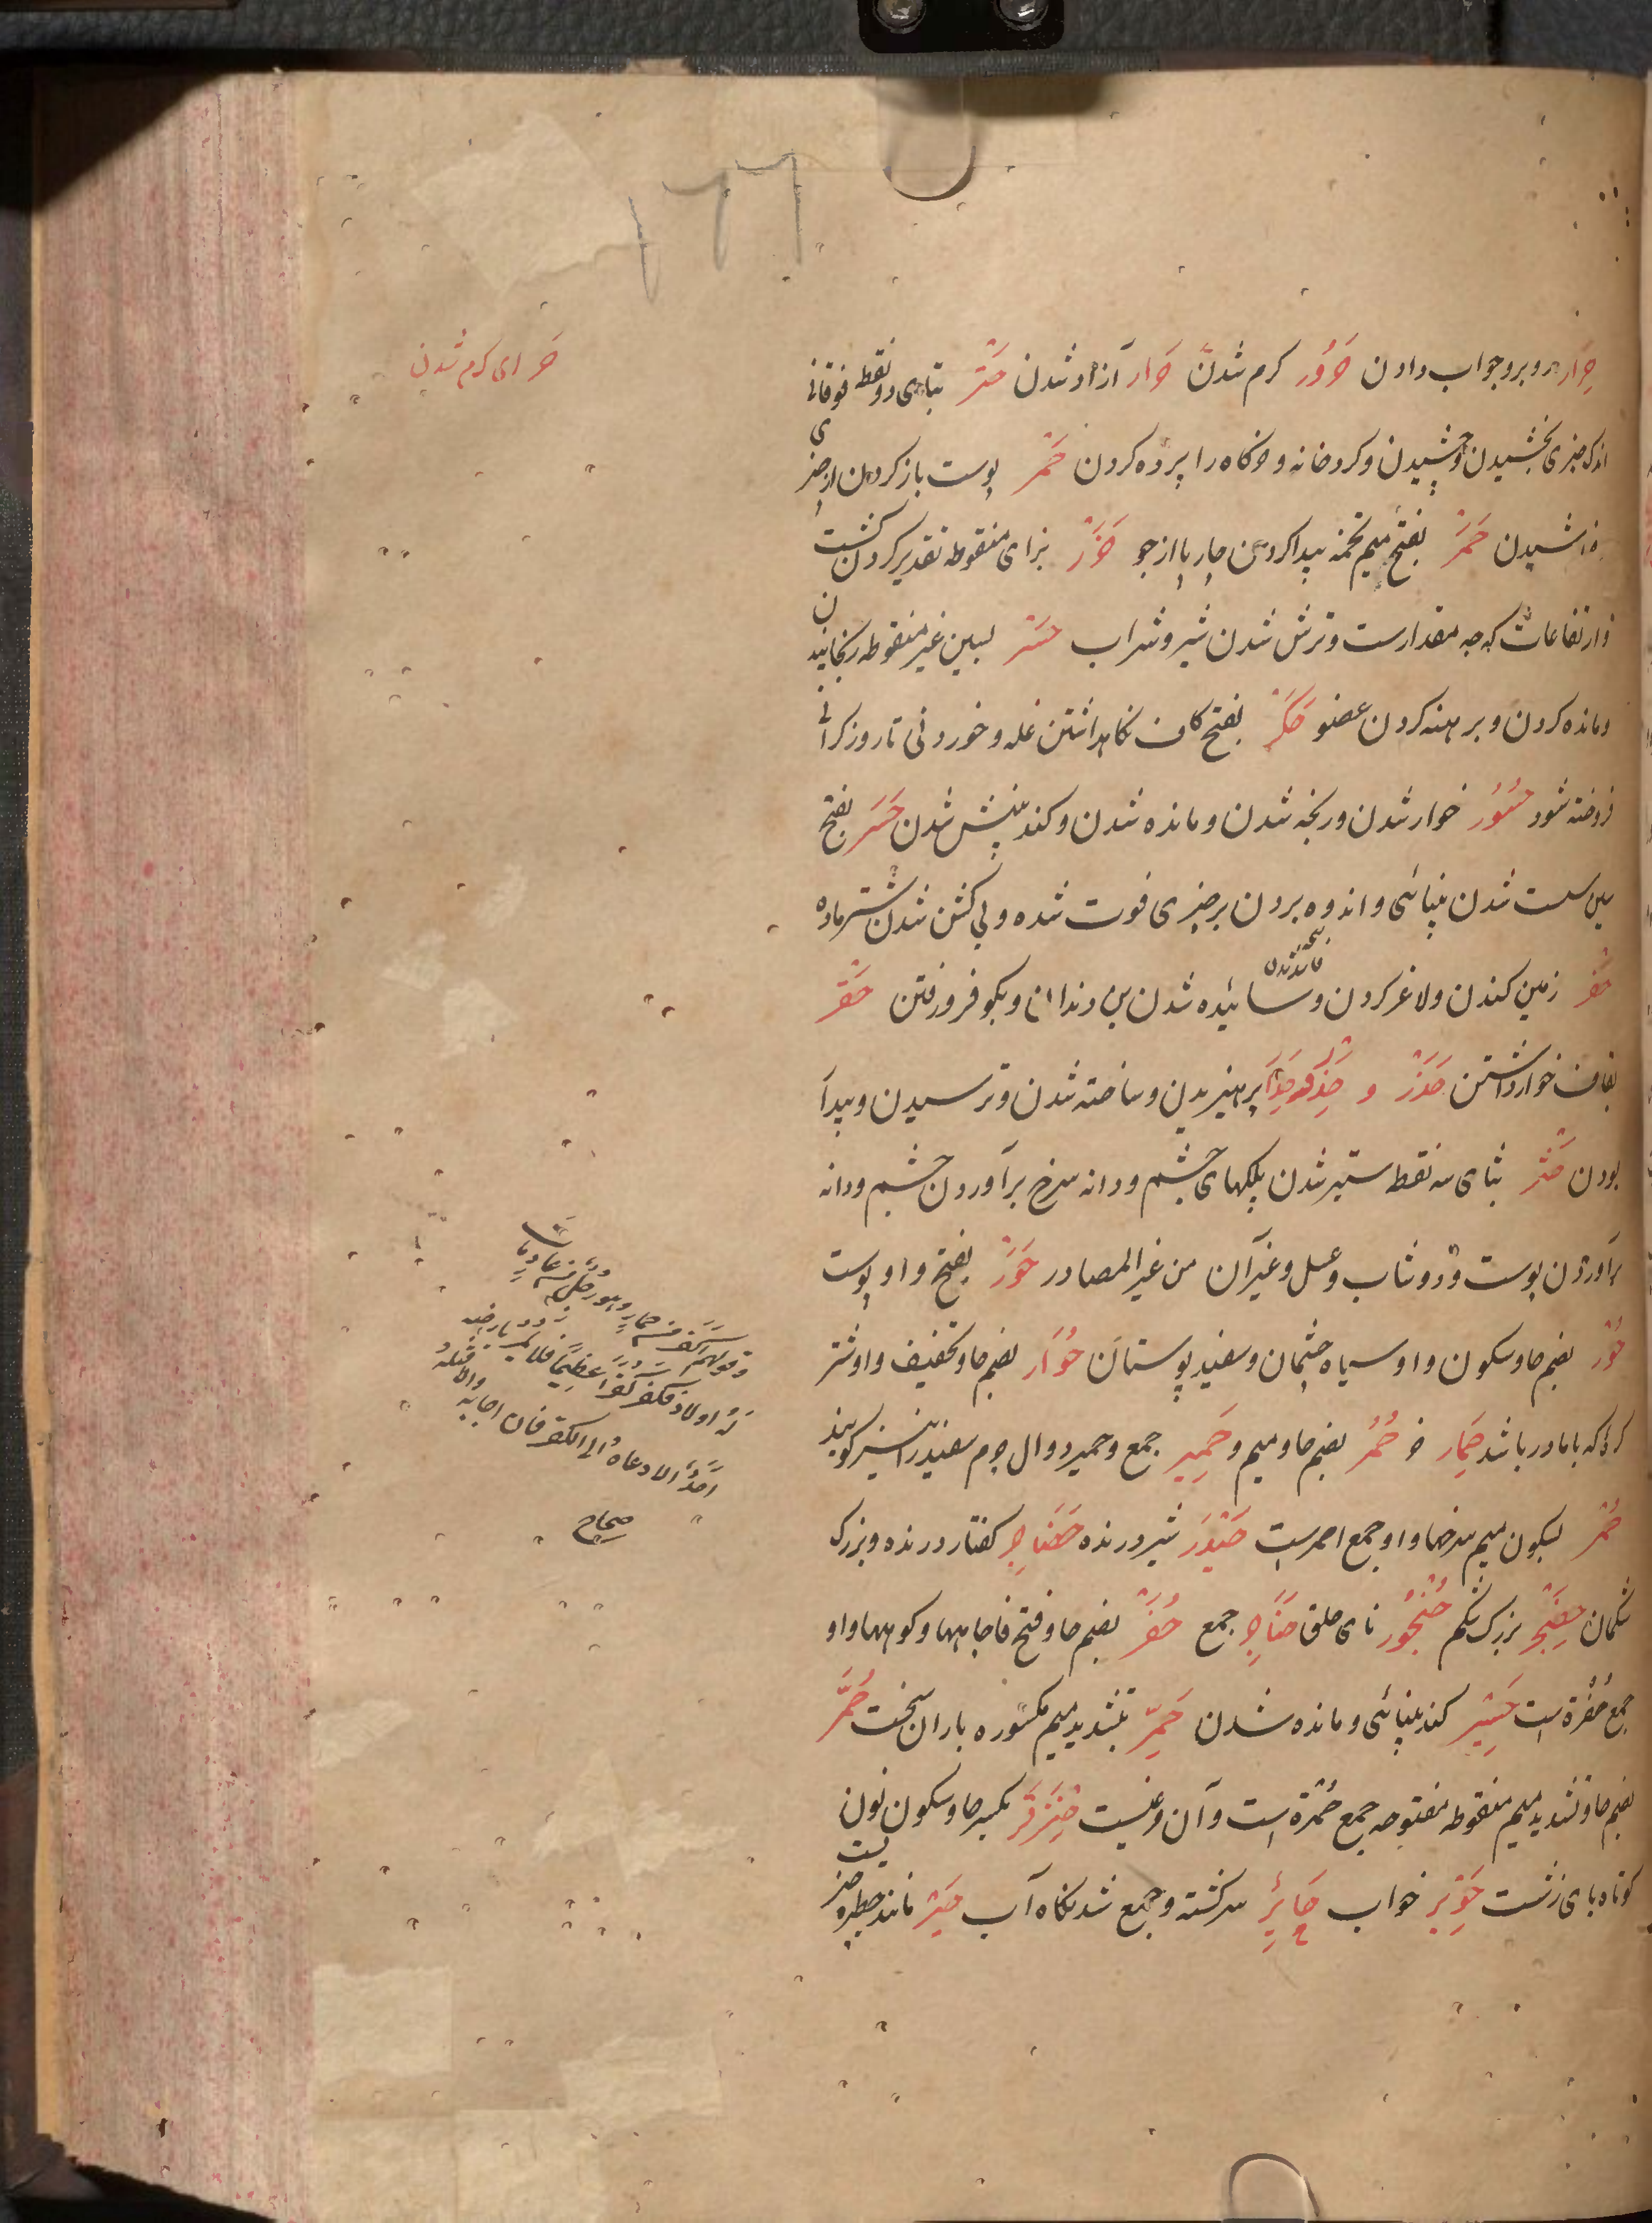 ١٦٦
حر ای کرم شدن
حِوار روبرو جواب دادن حَرُور کرم شدن حَرار آزاد شدن حَتْر بتاهی دو نقطه فوقانی
اندک چیزی بخشیدن و چشیدن و کرد خانه و خرکاه را پرده کردن حَمْر پوست باز کردن از چیزی
خراشیدن حَمَر بفتح میم تخمه پیدا کردن چارپا از جو حَزْر بزای منقوطه تقدیر کردن کشت
و ارتفاعات که چه مقدارست و ترش شدن شیر و شراب حَسْر بسین غیر منقوطه رنجانیدن
و مانده کردن و برهنه کردن عضو حَکَر بفتح کاف نکاهداشتن غله و خوردنی تا روز کرانی
فروخته شود حُسُور خوار شدن و رنجه شدن و مانده شدن و کند بینش شدن حَسَر بفتح
سین سست شدن بینائی و اندوه بردن بر چیزی فوت شده و بی کشن شدن شتر ماده
حَفْر زمین کندن و لاغر کردن و سائیده شدن بن دندان و بکو فرو رفتن حَقْر
بقاف خوار داشتن حَذَر و پرهیزیدن و ساخته شدن و ترسیدن و بیدار
بودن حَثَر بثای سه نقطه ستبر شدن پلکهای چشم و دانه سرخ برآوردن چشم و دانه
برآوردن پوست و دوشاب و عسل و غیر آن من غیر المصادر حَوَر بفتح واو پوست
حُوْر بضم حا و سکون واو سیاه چشمان و سفید پوستان حُوَار بضم حا و تخفیف واو شتر
کره که با مادر باشد حِمَار خر حُمُر بضم حا و میم و حَمِیر جمع و حمیر دوال چرم سفید را نیز کویند
حُمْر بسکون میم سرخها و او جمع احمر است حَیْدَر شیر درنده حَضَاجِر کفتار درنده و بزرک
شکمان حِضَجْر بزرک شکم حُنْجُور نای حلق حَنَاجِر جمع حُفَر بضم حا و فتح فا چاهها و کوها و او
جمع حُفْرَة است حَسِیْر کند بینائی و مانده شدن حَمِرّ بتشدید میم مکسوره باران سخت حُمَّر
بضم حا و تشدید میم منقوطه مفتوحه جمع حُمَّرَة است و آن مرغیست حِنْزَقْر بکسر حا و سکون نون
کوتاه بالای زشت خواب حَائِر سرکشته و جمع شدنکاه آب حَیْر مانند حظیره چیزیست
وقولهم اکفر من حمار وهو رجل من عاد مات
له اولاد فکفر کفراً عظیماً فلا یمر بارضه
احد الا دعاه الی الکفر فان اجابه والا قتله
صحاح